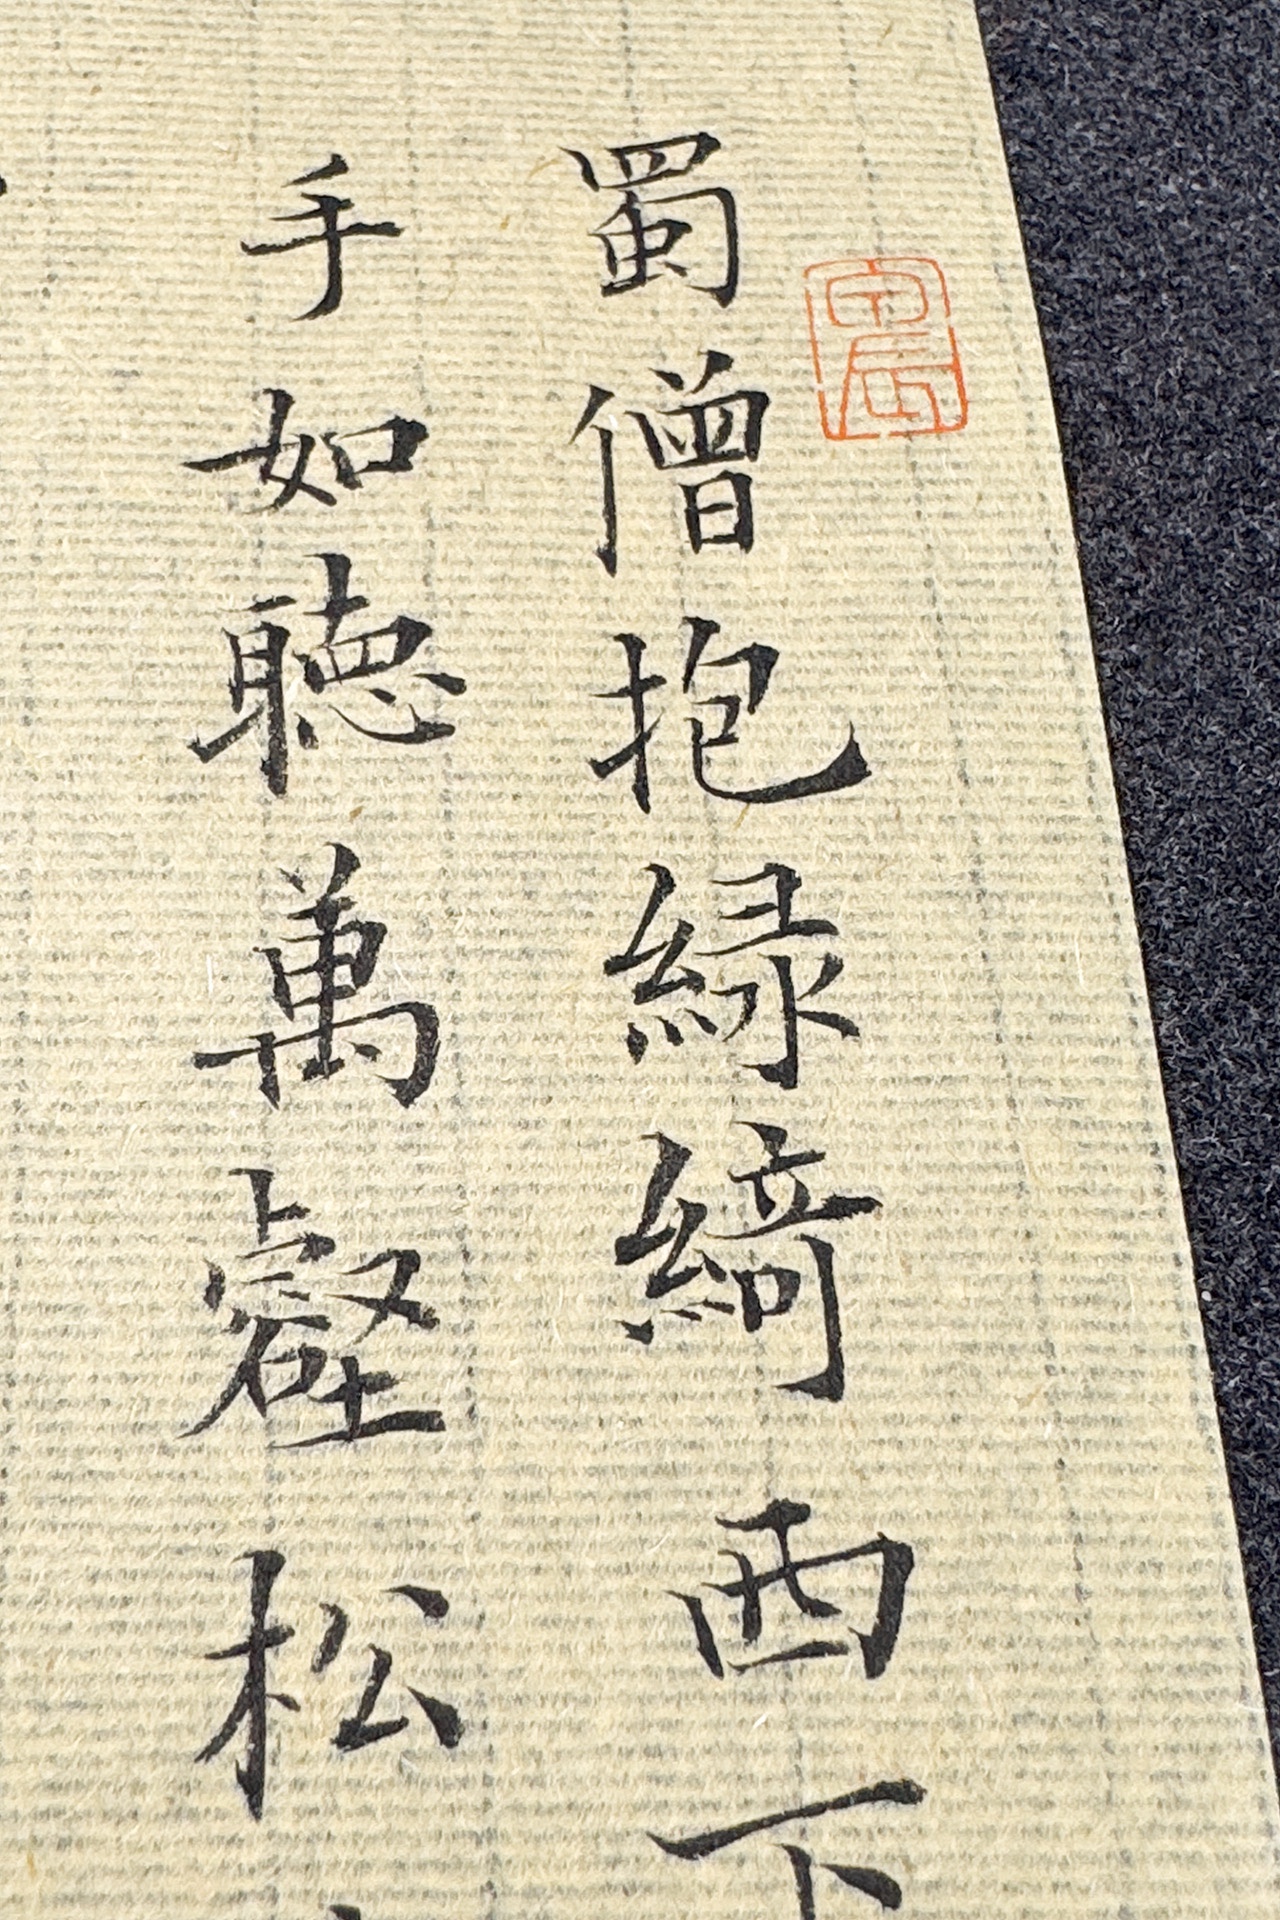 蜀僧抱綠綺西下
手如聽萬壑松